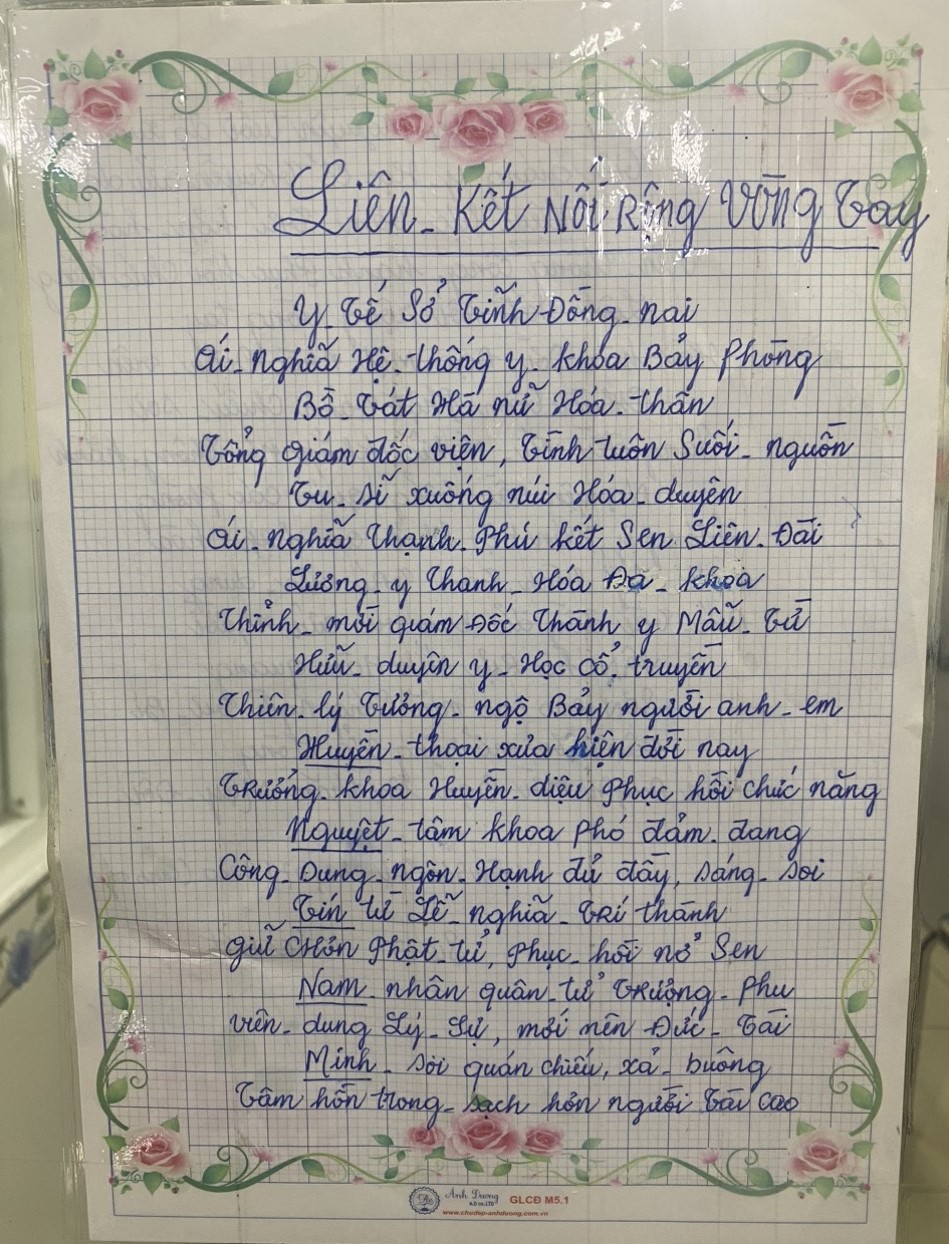 Liên - Kết Nối Rộng Vòng Tay
Y - Tế Sở Tỉnh Đồng - nai
Ái - nghĩa Hệ - thống y - khoa Bảy Phòng
Bồ - Tát Há nữ Hóa - thân
Tổng giám đốc viện, Tình luôn Suối - nguồn
Tu - sĩ xuống núi Hóa - duyên
Ái - nghĩa Thạnh - Phú kết Sen Liên - Đài
Lương - y Thanh - Hóa Đa - khoa
Thỉnh - mời giám Đốc Thành y Mẫu - Tử
Hữu - duyên y - Học cổ, truyền
Thiên - lý Tưởng - ngộ Bảy người anh - em
Huyền - thoại xưa hiện đời nay
Trưởng - khoa Huyền - diệu Phục hồi chức năng
Nguyệt - tâm khoa phó đảm - đang
Công - Dung - ngôn - Hạnh đủ đầy, sáng - soi
Tín từ Lễ - nghĩa - Trí thành
giữ Chơn Phật - tử, Phục - hồi nở Sen
Nam - nhân quân - tử Trượng - Phu
viên - dung Lý - Sự, mới nên Đức - Tài
Minh - soi quán chiếu, xả - buông
Tâm hồn trong - sạch hơn người Tài cao
Anh Dương
A.D co.,LTD
GLCĐ M5.1
www.chudep-anhduong.com.vn